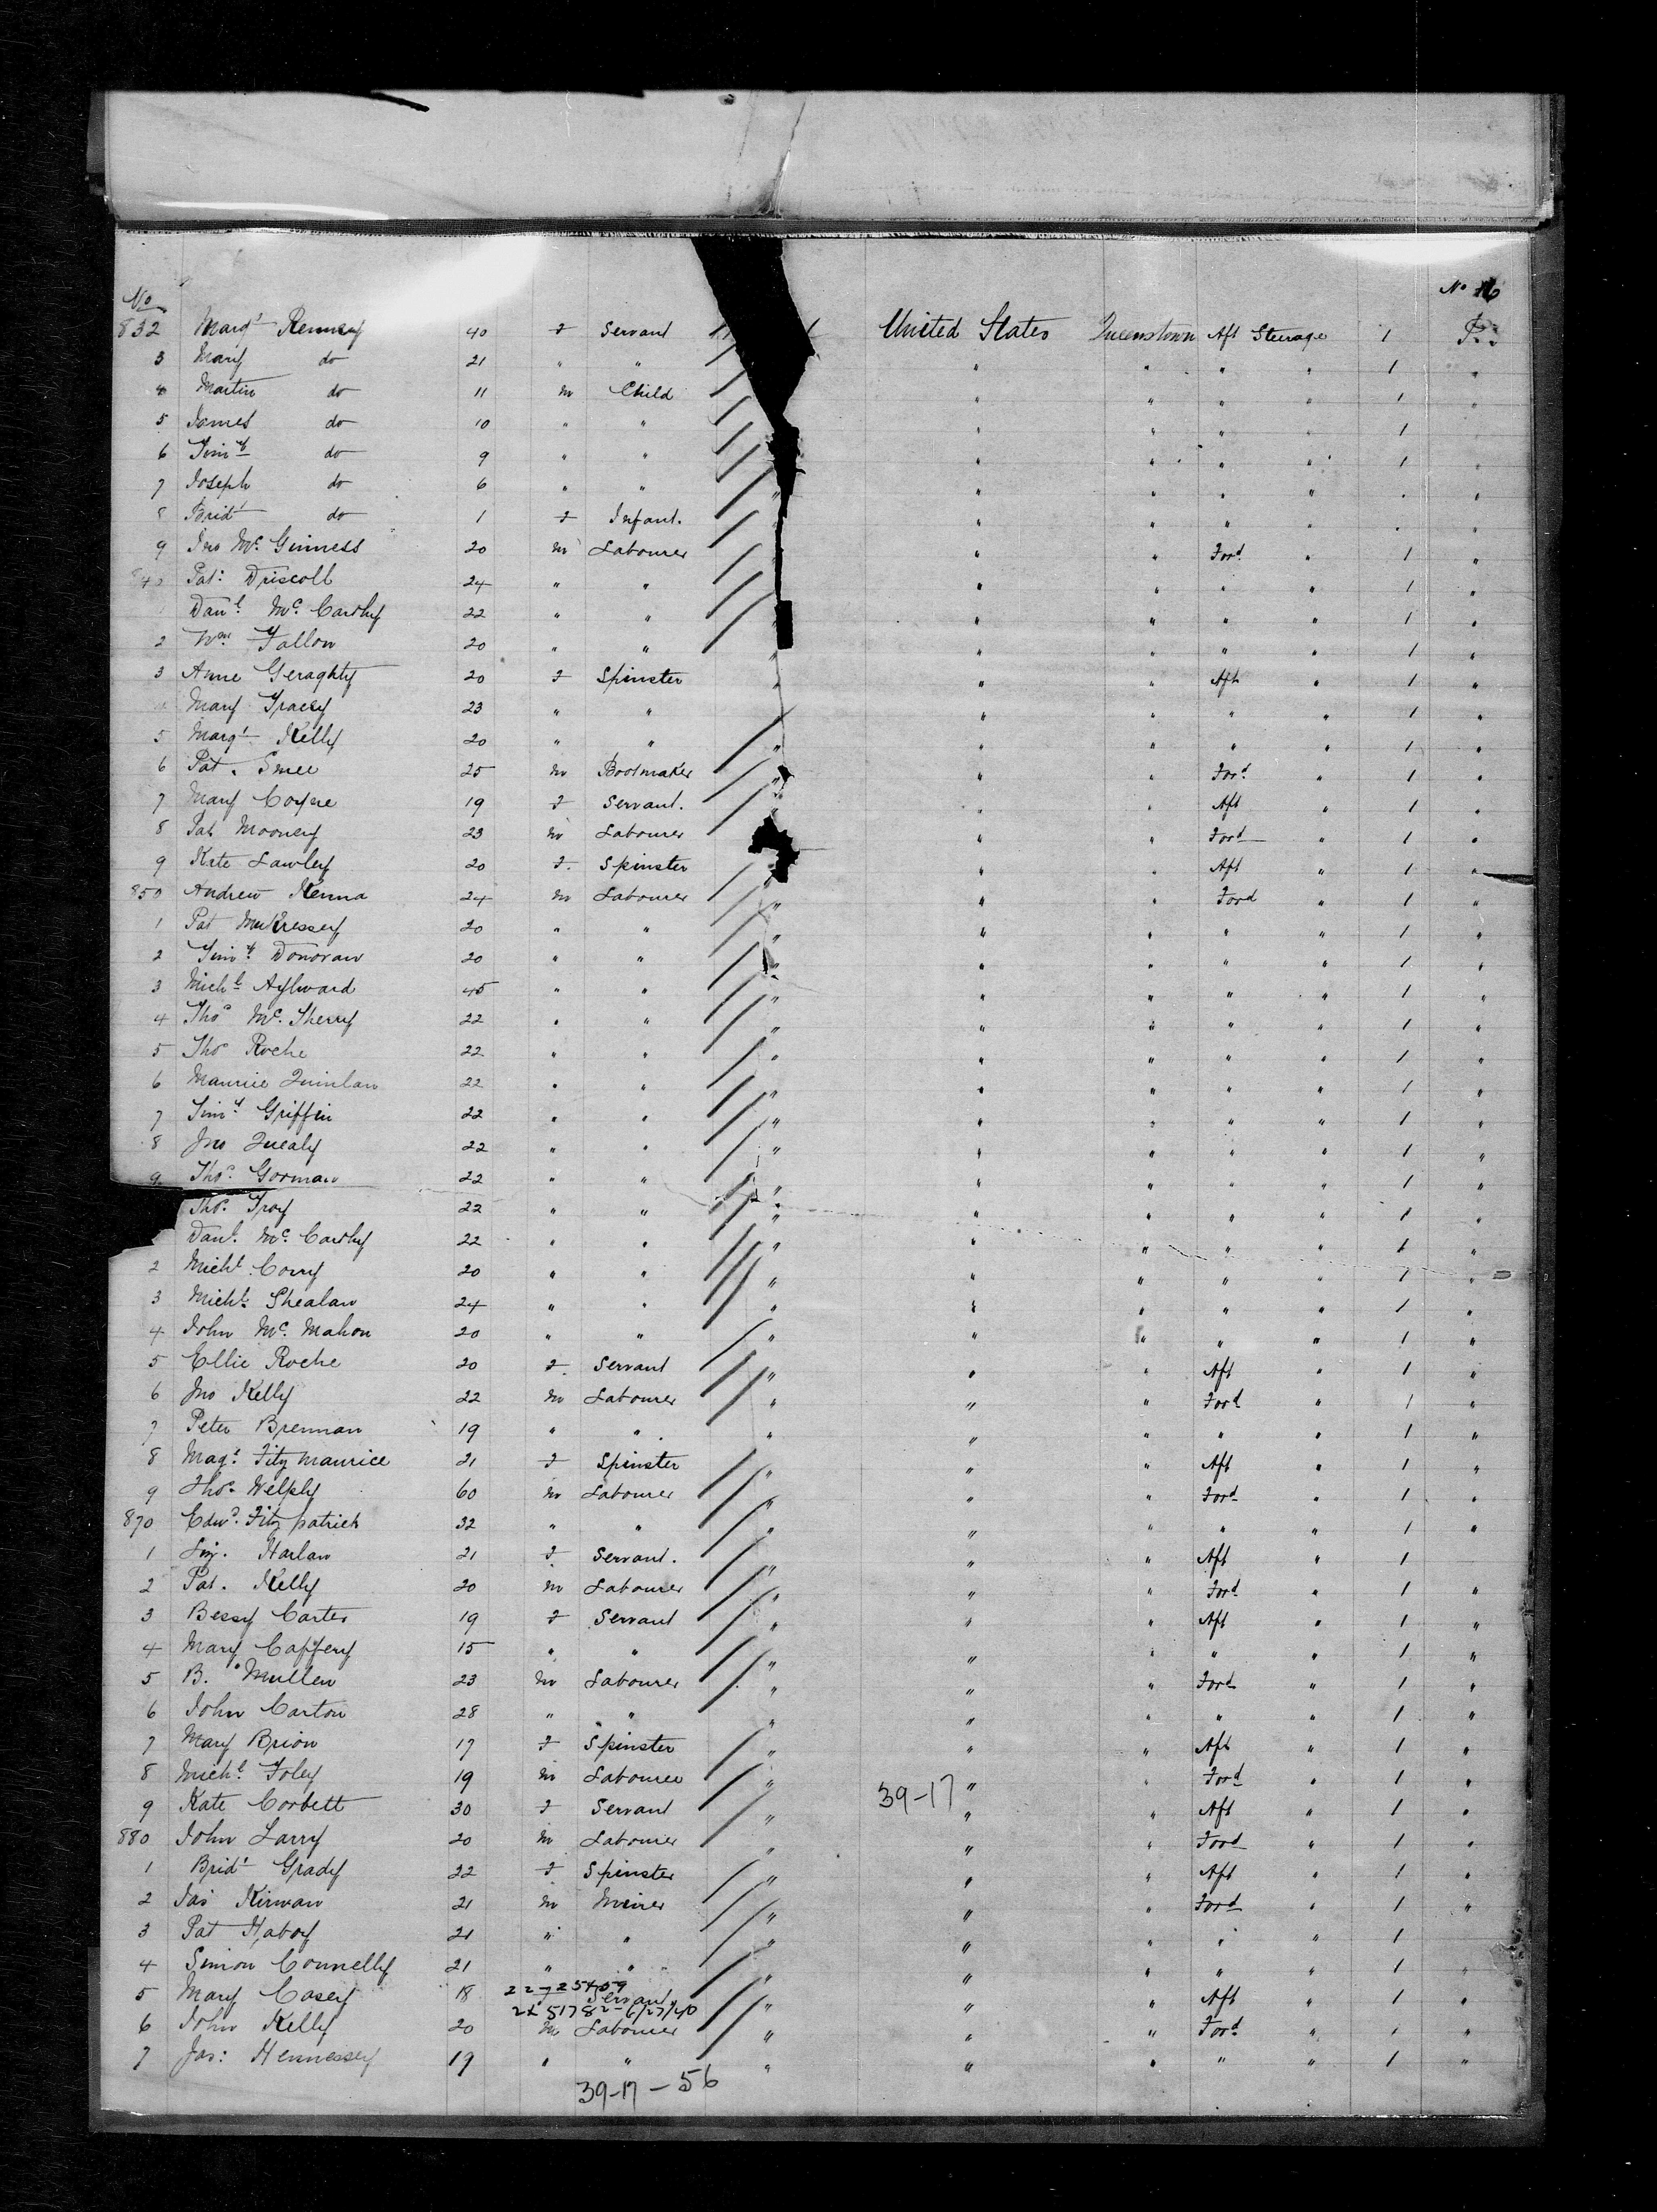 No No 16
832 Margt Kenney 40 F Servant United States Queenstown Aft Steerage 1 P..
3 Mary do 21 " " " " " " 1 "
4 Martin do 11 M Child " " " " 1 "
5 James do 10 " " " " " " 1
6 Timy do 9 " " " " " " 1 "
7 Joseph do 6 " " " " " " " "
8 Bridt do 1 F Infant. " " " " " "
9 Jno Mc. Guiness 20 M Labourer " " Ford " 1 "
840 Pat: Driscoll 24 " " " " " " 1 "
Danl. Mc. Carthy 22 " " " " " " " 1 "
2 Wm Fallon 20 " " " " " " " 1 "
3 Anne Geraghty 20 F Spinster " " " Aft " 1 "
Mary Tracey 23 " " " " " " 1 "
5 Margt Kelly 20 " " " " " " " 1 "
6 Pat. Smee 25 M Bootmaker " " " Ford " 1 "
7 Mary Coyne 19 F Servant. " " " Aft " 1 "
8 Pat Mooney 23 M Labourer " " Ford " 1 "
9 Kate Lawley 20 F. Spinster " " " Aft " 1 "
850 Andrew Kenna 24 M Labourer " " " Ford " 1 "
1 Pat 20 " " " " " " " 1 "
2 Timy. Donovan 20 " " " " " " " 1 "
3 Michl Aylward 45 " " " " " " " 1 "
4 Thos Mc. Sherry 22 " " " " " " " 1 "
5 Thos Roche 22 " " " " " " " 1 "
6 Maurice Quinlan 22 " " " " " " " 1 "
7 Timy. Griffin 22 " " " " " " " 1 "
8 Jno Quealy 22 " " " " " " " 1 "
9 Thos. Gorman 22 " " " " " " " 1 "
Thos. Troy 22 " " " " " " " 1 "
Danl. Mc. Carthy 22 " " " " " " " 1 "
2 Michl Corry 20 " " " " " " " 1 "
3 Michl. Shealan 24 " " " " " " " 1 "
4 John Mc. Mahon 20 " " " " " " " 1 "
5 Ellie Roche 20 F. Servant " " " Aft " 1 "
6 Jno Kelly 22 M Labourer " " " Ford " 1 "
7 Peter Brennan 19 " " " " " " " 1 "
8 Magt. Fitzmaurice 21 F Spinster " " " Aft " 1 "
9 Thos. Welply 60 M Labourer " " " Ford " 1 "
870 Edwd. Fitzpatrick 32 " " " " " " " 1 "
1 Liz. Harlan 21 F. Servant. " " " Aft " 1
2 Pat. Kelly 20 M Labourer " " " Ford " 1 "
3 Bessy Carter 19 F Servant " " " Aft " 1 "
4 Mary Caffery 15 " " " " " " " 1 "
5 B. Mullen 23 M Labourer " " " Ford " 1 "
6 John Carton 28 " " " " " " " 1 "
7 Mary Brion 17 F Spinster " " " Aft " 1 "
8 Michl. Foley 19 M Labourer " " " Ford " 1 "
39-17
9 Kate Corbett 30 F Servant " " " Aft " 1 "
880 John Larry 20 M Labourer " " " Ford " 1 "
1 Bridt Grady 22 F Spinster " " " Aft " 1 "
2 Jas Kirwan 21 M Miner " " " Ford " 1 "
3 Pat 21 " " " " " " " 1 "
4 Simon Connelly 21 " " " " " " " 1 "
22-725409
5 Mary Casey 18 Servant. " " " Aft " 1 "
22 51782-6/27/40
6 John Kelly 20 M Labourer " " " Ford " 1 "
7 Jas: Hennessey 19 " " " " " " " 1 "
39-17-56